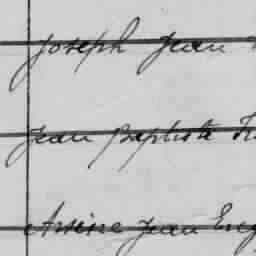 Joseph Jean
Jean Baptiste
Arsène Jean